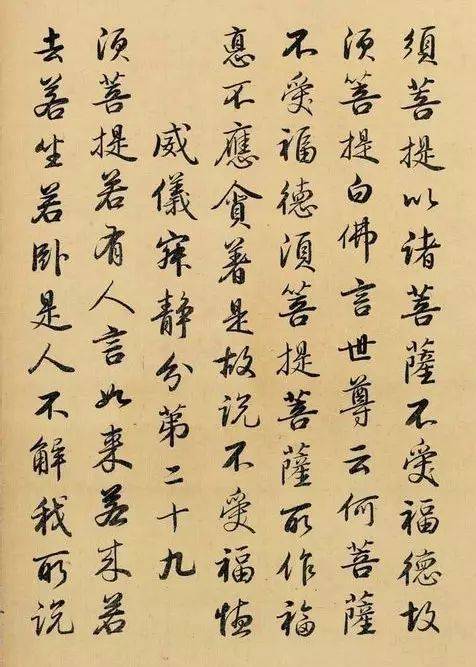 須菩提以諸菩薩不受福德故
須菩提白佛言世尊云何菩薩
不受福德須菩提菩薩所作福
德不應貪著是故說不受福德
威儀寂靜分第二十九
須菩提若有人言如來若來若
去若坐若卧是人不解我所說